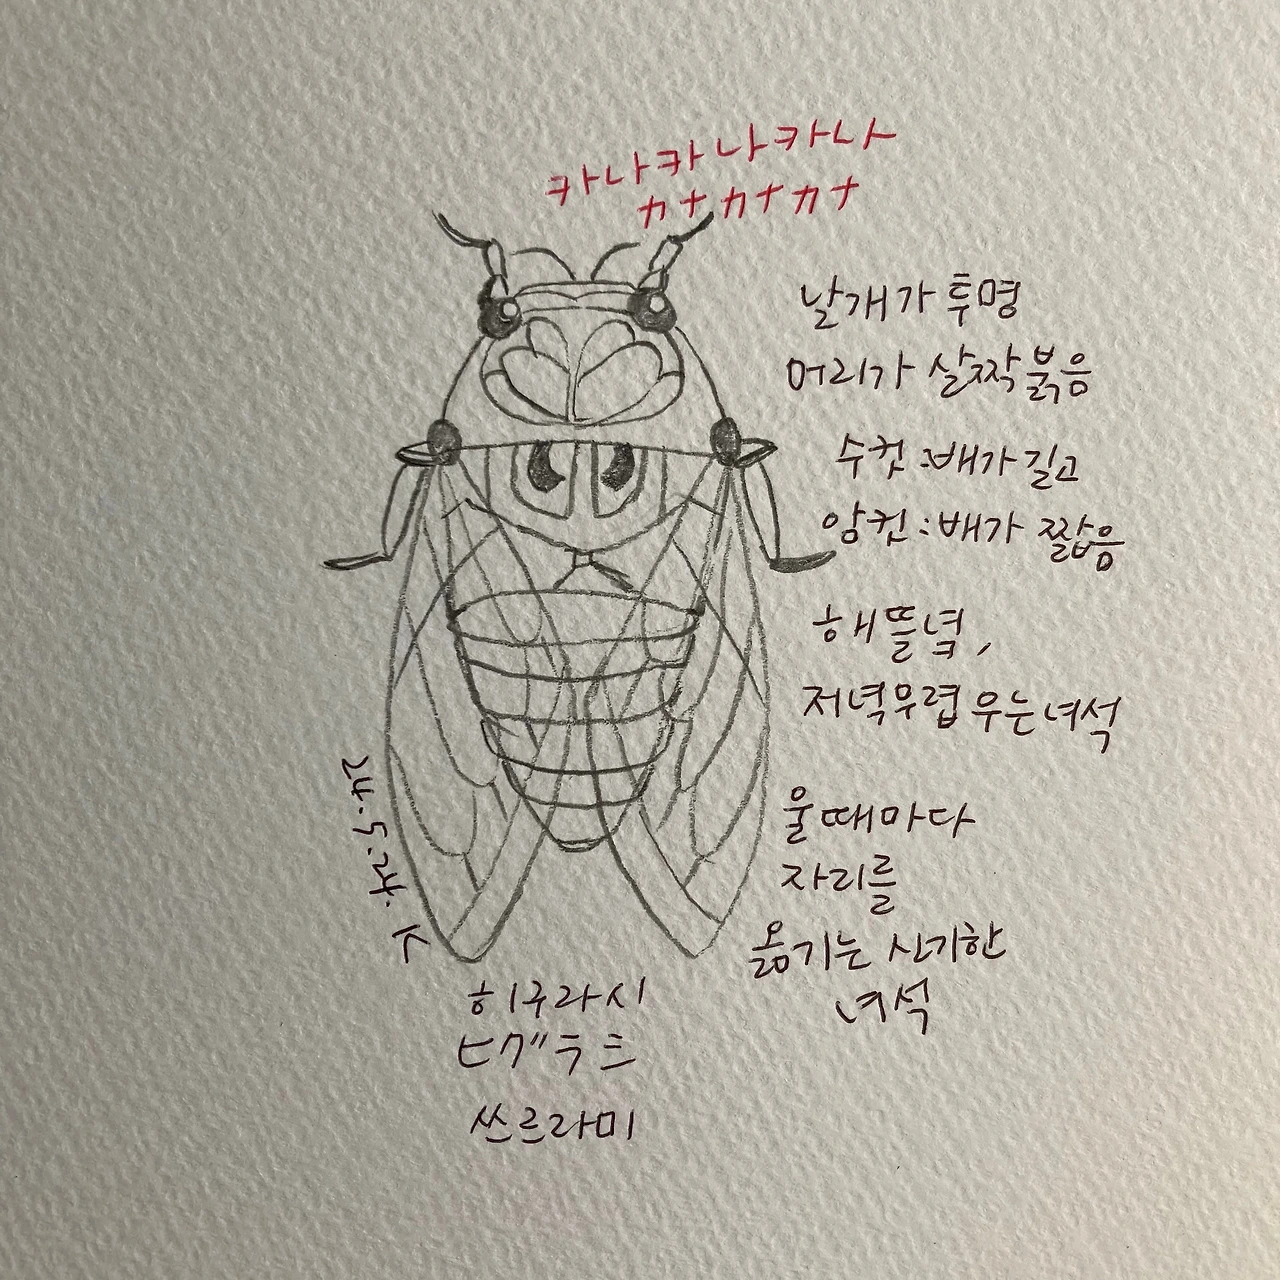 카나카나카나
カナカナカナ
날개가 투명
머리가 살짝 붉음
수컷 : 배가 길고
암컷 : 배가 짧음
해뜰녘,
저녁무렵 우는 녀석
울때마다
자리를
옮기는 신기한
녀석
히구라시
ヒグラミ
쓰르라미